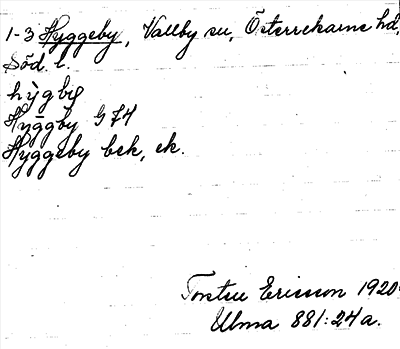 1-3 Hyggeby, Vallby sn, Österrekarne hd,
Söd. l.
hỳgby
Hyggby G 74
Hyggeby bek, ek.
Torsten Ericsson 1920
Ulma 881:24a.